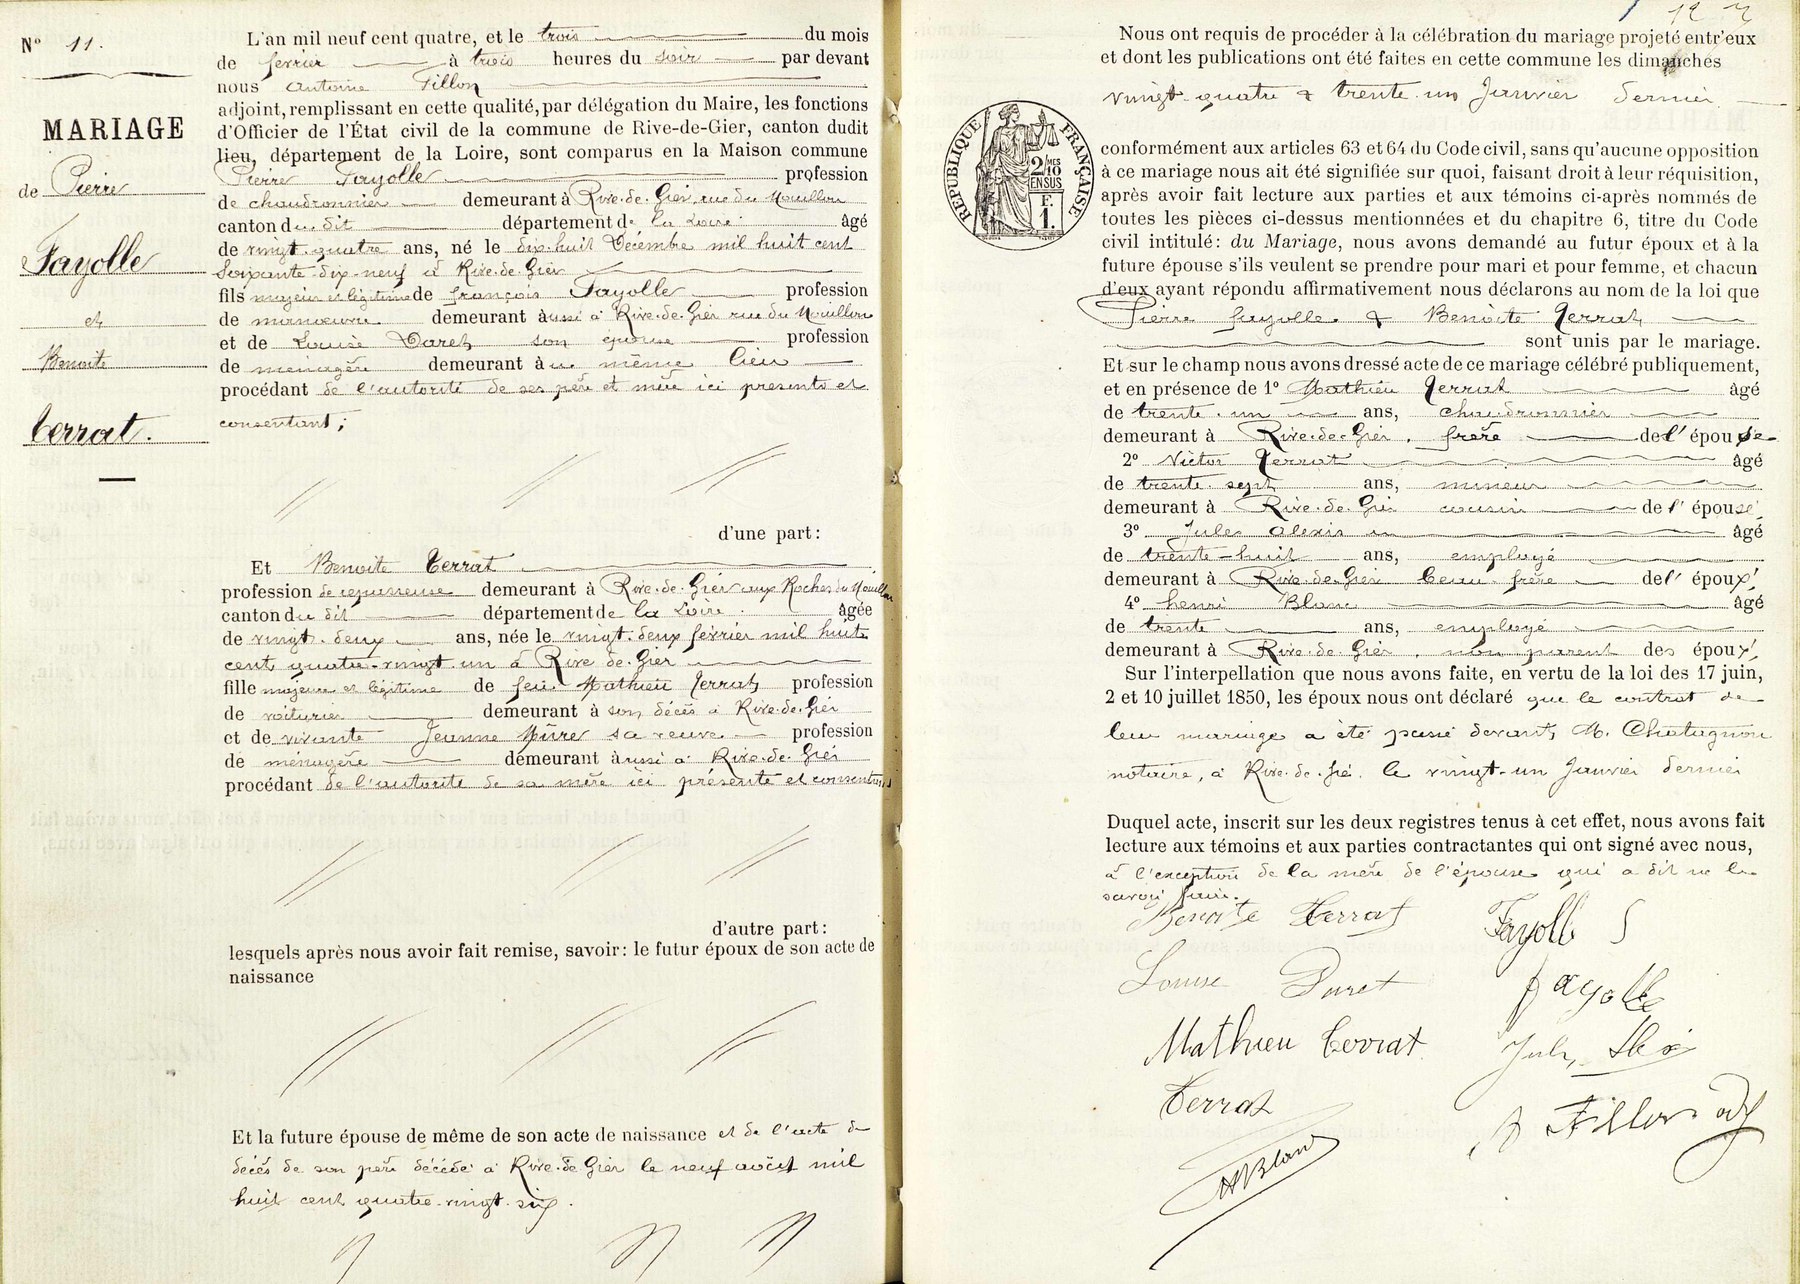 N° 11.
MARIAGE
de Pierre
Fayolle
et
Benoite
Terrat.
L'an mil neuf cent quatre, et le trois du mois
de février à trois heures du soir par devant
nous Antoine Fillon
adjoint, remplissant en cette qualité, par délégation du Maire, les fonctions
d'Officier de l'État civil de la commune de Rive-de-Gier, canton dudit
lieu, département de la Loire, sont comparus en la Maison commune
Pierre Fayolle profession
de chaudronnier demeurant à Rive-de-Gier, rue du Mouillon
canton du dit département de la Loire âgé
de vingt-quatre ans, né le dix-huit Décembre mil huit cent
soixante-dix-neuf à Rive-de-Gier
fils majeur et légitime de françois Fayolle profession
de manœuvre demeurant aussi à Rive-de-Gier rue du Mouillon
et de Louise Daret son épouse profession
de menagère demeurant au même lieu
procédant de l'autorité de ses père et mère ici présents et
consentant;
d'une part:
Et Benoite Terrat
profession de repasseuse demeurant à Rive-de-Gier aux Roches du Mouillon
canton du dit département de la Loire. âgée
de vingt-deux ans, née le vingt-deux février mil huit
cent quatre-vingt-un à Rive de-Gier
fille majeure et légitime de feu Mathieu Terrat profession
de voiturier demeurant à son décès à Rive-de-Gier
et de vivante Jeanne sa veuve profession
de ménagère demeurant aussi à Rive-de-Gier
procédant de l'autorité de sa mère ici présente et consentant
d'autre part:
lesquels après nous avoir fait remise, savoir: le futur époux de son acte de
naissance
Et la future épouse de même de son acte de naissance et de l'acte de
décès de son père décédé à Rive-de-Gier le neuf août mil
huit cent quatre-vingt-six.
Nous ont requis de procéder à la célébration du mariage projeté entr'eux
et dont les publications ont été faites en cette commune les dimanches
vingt-quatre & trente-un Janvier dernier
RÉPUBLIQUE FRANÇAISE
2/10 MES
EN SUS
F.
1.
conformément aux articles 63 et 64 du Code civil, sans qu'aucune opposition
à ce mariage nous ait été signifiée sur quoi, faisant droit à leur réquisition,
après avoir fait lecture aux parties et aux témoins ci-après nommés de
toutes les pièces ci-dessus mentionnées et du chapitre 6, titre du Code
civil intitulé: du Mariage, nous avons demandé au futur époux et à la
future épouse s'ils veulent se prendre pour mari et pour femme, et chacun
d'eux ayant répondu affirmativement nous déclarons au nom de la loi que
Pierre fayolle & Benoite Terrat
sont unis par le mariage.
Et sur le champ nous avons dressé acte de ce mariage célébré publiquement,
et en présence de 1° Mathieu Terrat âgé
de trente-un ans, chaudronnier
demeurant à Rive-de-Gier, frère de l'épouse
2° Victor Terrat âgé
de trente-sept ans, mineur
demeurant à Rive-de-Gier cousin de l'épouse,
3° Jules Alexis âgé
de trente-huit ans, employé
demeurant à Rive-de-Gier beau-frère de l'époux,
4° henri Blanc âgé
de trente ans, employé
demeurant à Rive-de-Gier, non parent des époux,
Sur l'interpellation que nous avons faite, en vertu de la loi des 17 juin,
2 et 10 juillet 1850, les époux nous ont déclaré que le contrat de
leur mariage a été passé devant M. Chatagnon
notaire, à Rive-de-Gié. le vingt-un Janvier dernier
Duquel acte, inscrit sur les deux registres tenus à cet effet, nous avons fait
lecture aux témoins et aux parties contractantes qui ont signé avec nous,
à l'exception de la mère de l'épouse qui a dit ne le
savoir faire.
Benoite Terrat Fayolle
Louise Duret fayolle
Mathieu Terrat
Terrat A Fillon adj
HBlanc